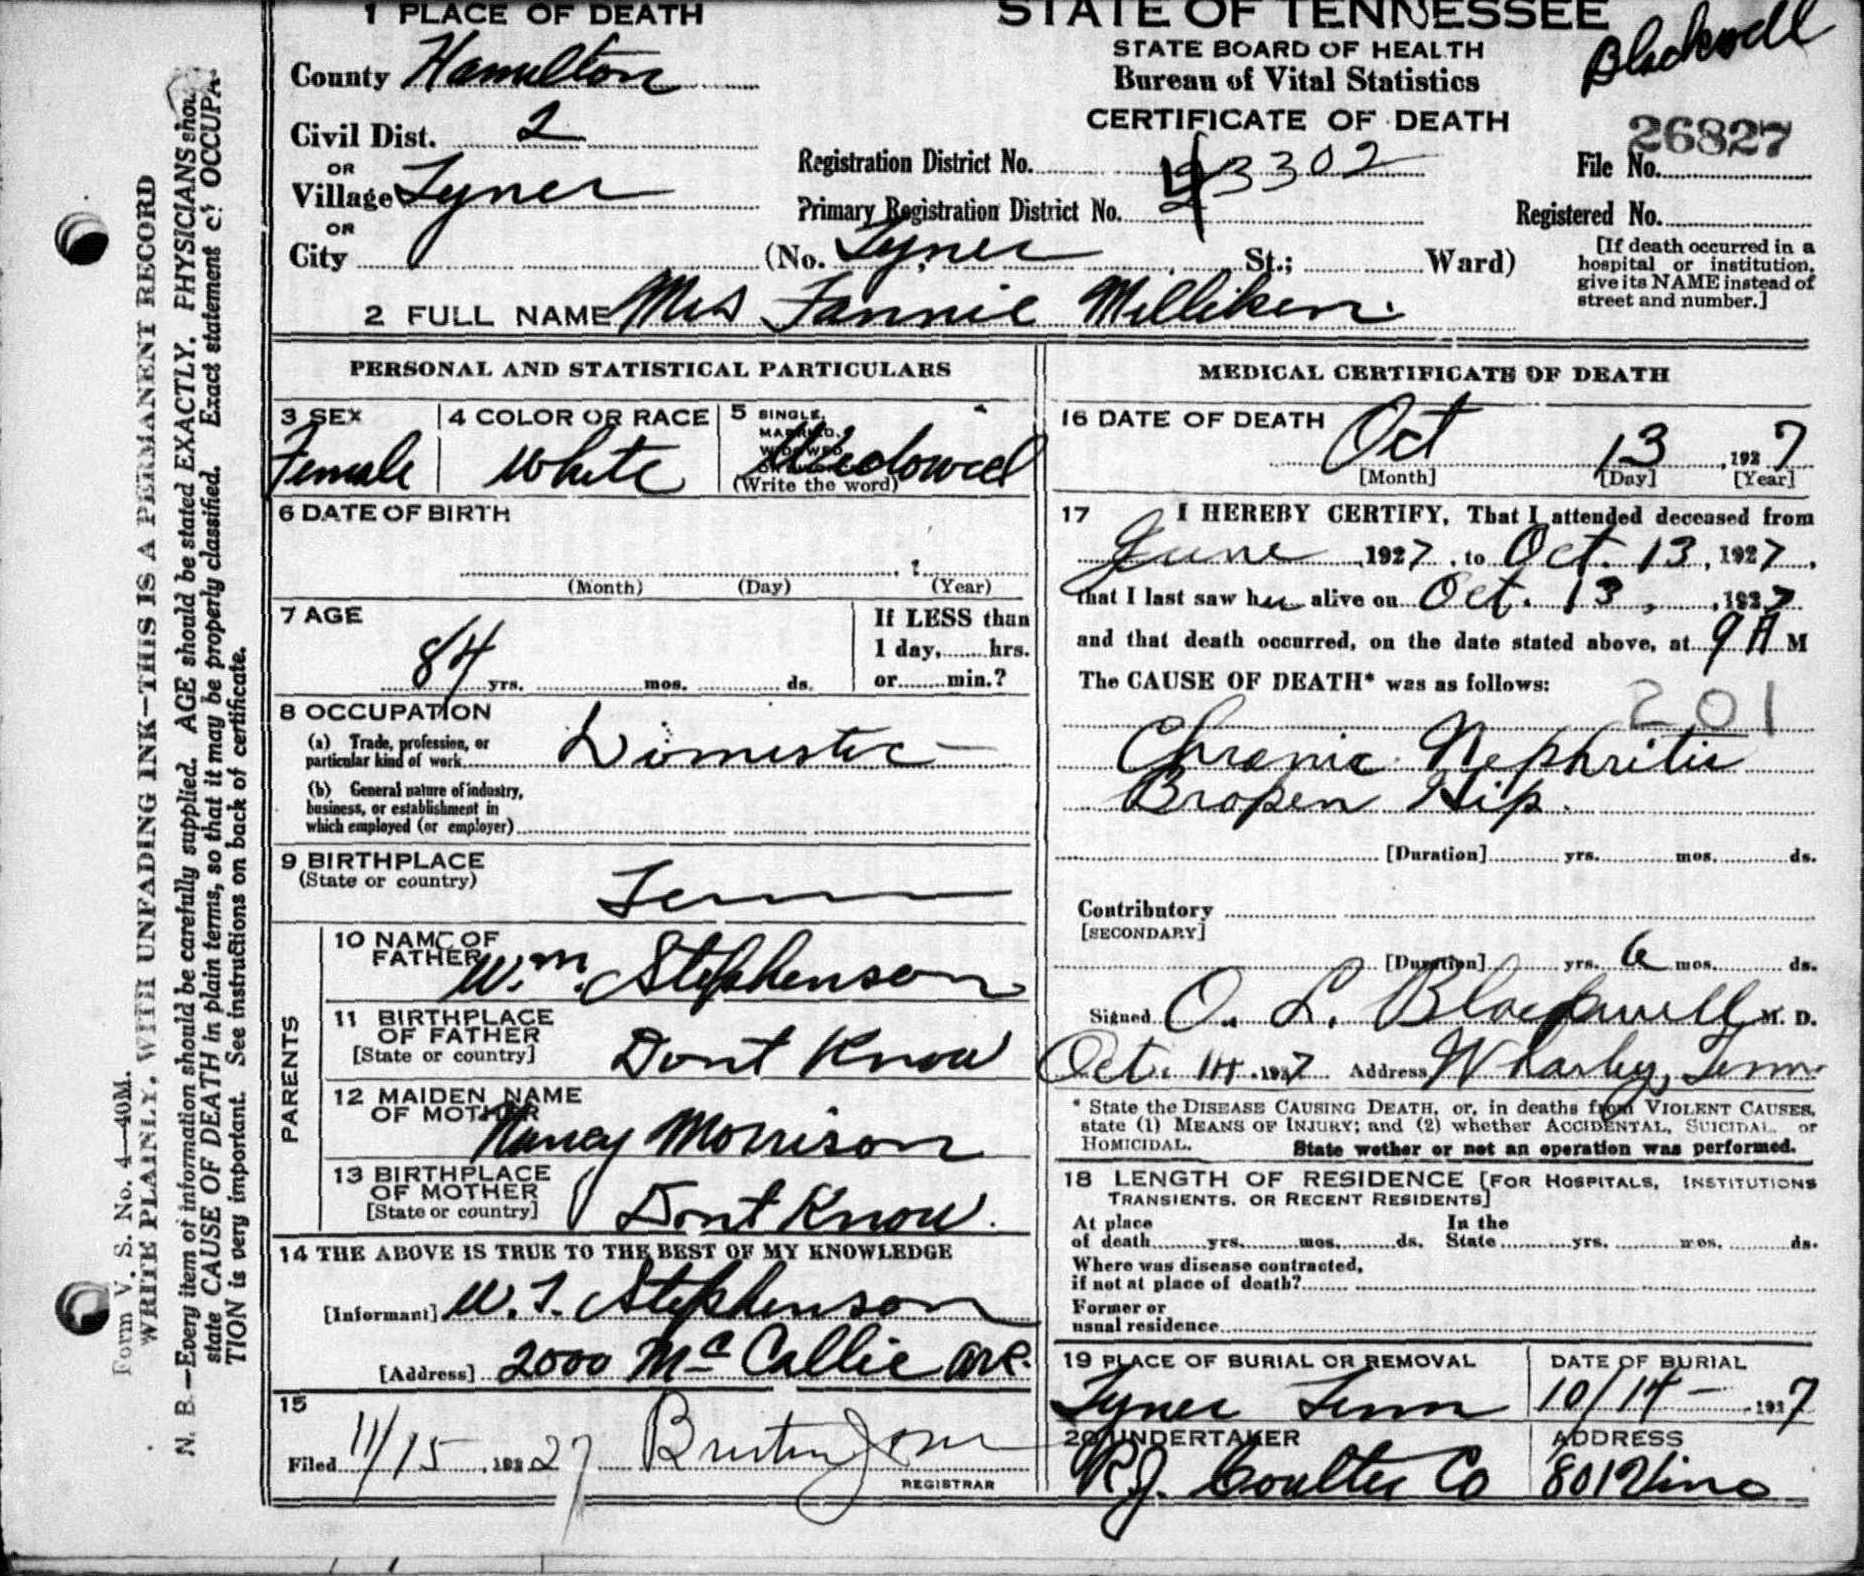 1 PLACE OF DEATH
STATE OF TENNESSEE
Blackwell
STATE BOARD OF HEALTH
County Hamilton
Bureau of Vital Statistics
CERTIFICATE OF DEATH
26827
Civil Dist. 2
OR
Registration District No. 3302
File No.
Village Tyner
Primary Registration District No.
Registered No.
OR
City (No. Tyner St.; Ward)
[If death occurred in a
hospital or institution,
give its NAME instead of
street and number.]
2 FULL NAME Mrs Fannie Milliken.
PERSONAL AND STATISTICAL PARTICULARS
3 SEX
Female
4 COLOR OR RACE
White
5 SINGLE,
MARRIED,
WIDOWED
Widowed
(Write the word)
6 DATE OF BIRTH
(Month) (Day) (Year)
7 AGE
84 yrs. mos. ds.
If LESS than
1 day, hrs.
or min.?
8 OCCUPATION
(a) Trade, profession, or
particular kind of work Domestic
(b) General nature of industry,
business, or establishment in
which employed (or employer)
9 BIRTHPLACE
(State or country) Tenn
PARENTS
10 NAME OF
FATHER Wm. Stephenson
11 BIRTHPLACE
OF FATHER
[State or country] Dont Know
12 MAIDEN NAME
OF MOTHER
Nancy Morrison
13 BIRTHPLACE
OF MOTHER
[State or country] Dont Know.
14 THE ABOVE IS TRUE TO THE BEST OF MY KNOWLEDGE
[Informant] W. T. Stephenson
[Address] 2000 McCallie ave.
15
Filed 11/15, 1927
REGISTRAR
MEDICAL CERTIFICATE OF DEATH
16 DATE OF DEATH
Oct 13, 1927
[Month] [Day] [Year]
17 I HEREBY CERTIFY, That I attended deceased from
June, 1927, to Oct. 13, 1927,
that I last saw her alive on Oct. 13, 1927
and that death occurred, on the date stated above, at 9 A M
The CAUSE OF DEATH* was as follows:
201
Chronic Nephritis
Broken Hip.
[Duration] yrs. mos. ds.
Contributory
[SECONDARY]
[Duration] yrs. 6 mos. ds.
Signed O. L. Blackwell M. D.
Oct. 14, 1927 Address Tenn
* State the DISEASE CAUSING DEATH, or, in deaths from VIOLENT CAUSES,
state (1) MEANS OF INJURY; and (2) whether ACCIDENTAL, SUICIDAL or
HOMICIDAL. State wether or not an operation was performed.
18 LENGTH OF RESIDENCE [FOR HOSPITALS, INSTITUTIONS
TRANSIENTS, OR RECENT RESIDENTS]
At place In the
of death yrs. mos. ds. State yrs. mos. ds.
Where was disease contracted,
if not at place of death?
Former or
usual residence
19 PLACE OF BURIAL OR REMOVAL
Tyner Tenn
DATE OF BURIAL
10/14 - 1927
20 UNDERTAKER
R.J. Coulter Co
ADDRESS
801 Vine
Form V. S. No. 4—40M.
WRITE PLAINLY, WITH UNFADING INK—THIS IS A PERMANENT RECORD
N. B.—Every item of information should be carefully supplied. AGE should be stated EXACTLY. PHYSICIANS shou
state CAUSE OF DEATH in plain terms, so that it may be properly classified. Exact statement of OCCUPA-
TION is very important. See instructions on back of certificate.